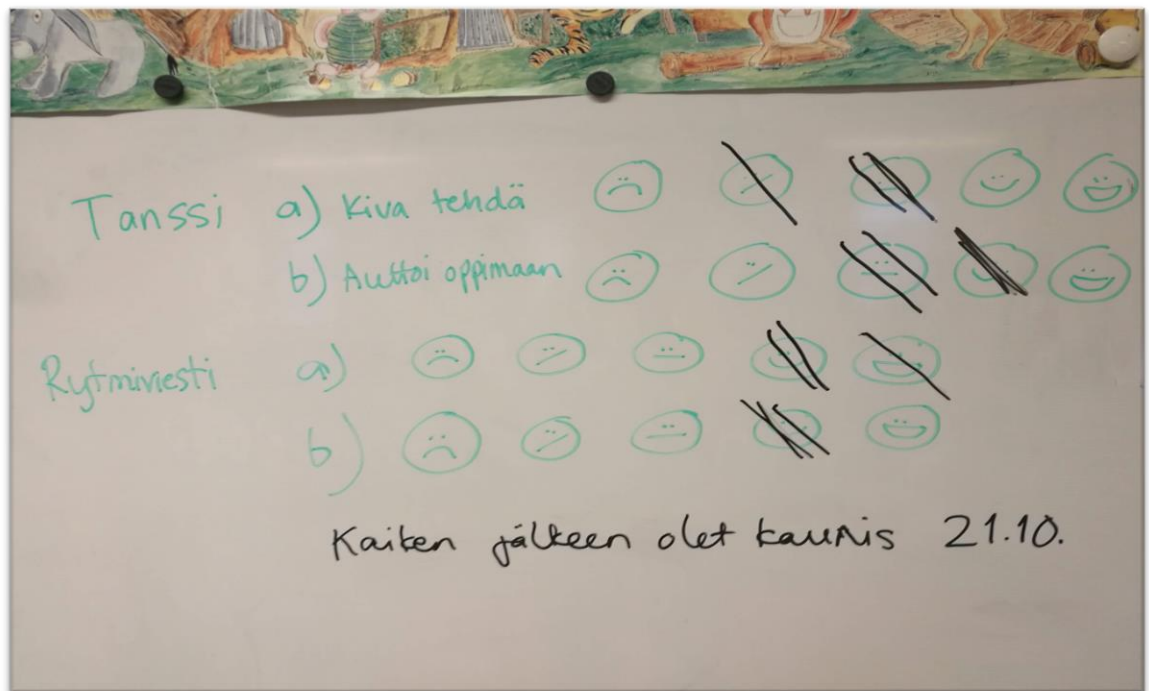 Tanssi a) Kiva tehdä
b) Auttoi oppimaan
Rytmiviesti a)
b)
Kaiken jälkeen olet kaunis 21.10.